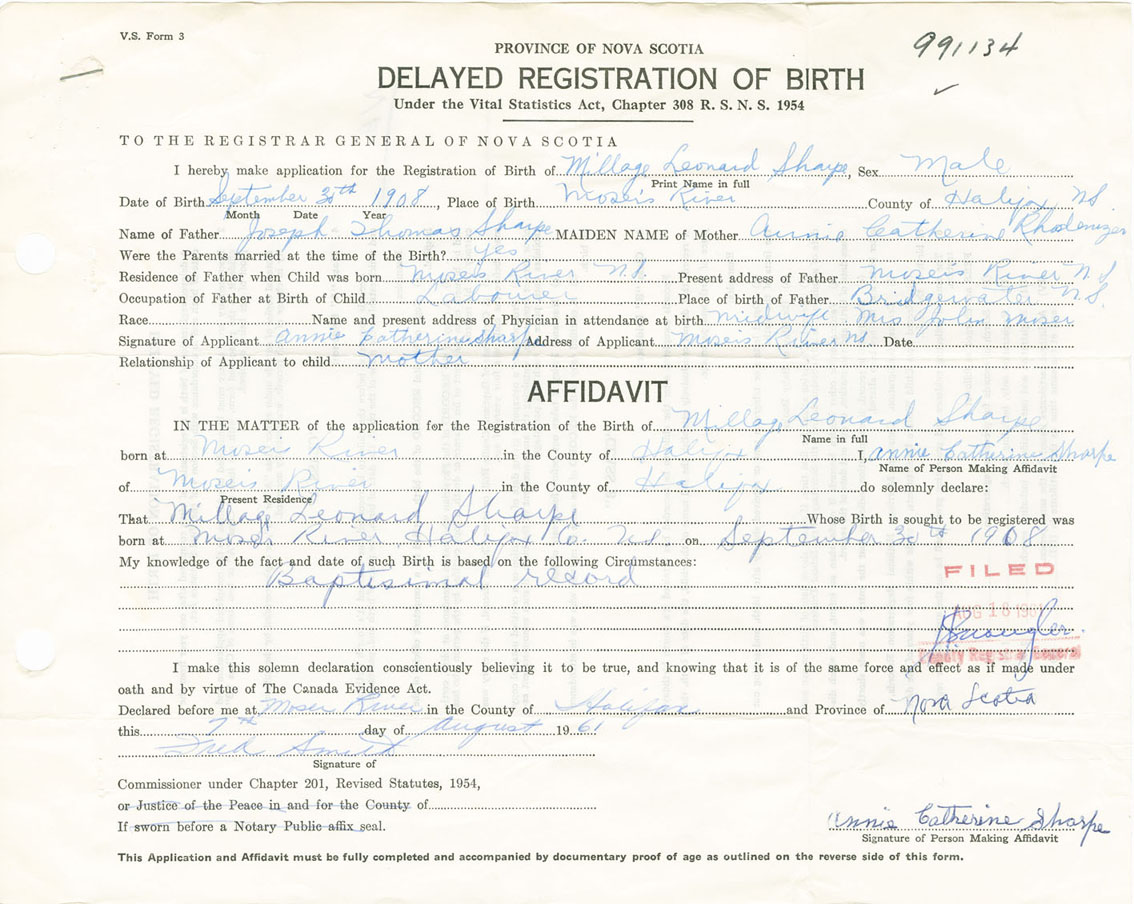 V.S. Form 3
991134
PROVINCE OF NOVA SCOTIA
DELAYED REGISTRATION OF BIRTH
Under the Vital Statistics Act, Chapter 308 R. S. N. S. 1954
TO THE REGISTRAR GENERAL OF NOVA SCOTIA
I hereby make application for the Registration of Birth of Millage Leonard Sharpe, Sex Male
Print Name in full
Date of Birth September 30th 1908, Place of Birth Moseis River County of Halifax NS.
Month Date Year
Name of Father Joseph Thomas Sharpe MAIDEN NAME of Mother Annie Catherine Rhodenizer
Were the Parents married at the time of the Birth? Yes
Residence of Father when Child was born Moseis River N.S. Present address of Father Moseis River N.S
Occupation of Father at Birth of Child Labourer Place of birth of Father Bridgewater N.S.
Race Name and present address of Physician in attendance at birth midwife Mrs John Moser
Signature of Applicant Annie Catherine Sharpe Address of Applicant Moseis River NS Date
Relationship of Applicant to child Mother
AFFIDAVIT
IN THE MATTER of the application for the Registration of the Birth of Millage Leonard Sharpe
Name in full
born at Moseis River in the County of Halifax I, Annie Catherine Sharpe
Name of Person Making Affidavit
of Moseis River in the County of Halifax do solemnly declare:
Present Residence
That Millage Leonard Sharpe Whose Birth is sought to be registered was
born at Moseis River Halifax Co. N.S. on September 30th 1908
My knowledge of the fact and date of such Birth is based on the following Circumstances:
Baptisimal record
FILED
AUG 18 1961
Deputy Registrar General
I make this solemn declaration conscientiously believing it to be true, and knowing that it is of the same force and effect as if made under
oath and by virtue of The Canada Evidence Act.
Declared before me at Moser River in the County of Halifax and Province of Nova Scotia
this 7th day of August 1961
Fred Smith
Signature of
Commissioner under Chapter 201, Revised Statutes, 1954,
or Justice of the Peace in and for the County of
If sworn before a Notary Public affix seal.
Annie Catherine Sharpe
Signature of Person Making Affidavit
This Application and Affidavit must be fully completed and accompanied by documentary proof of age as outlined on the reverse side of this form.